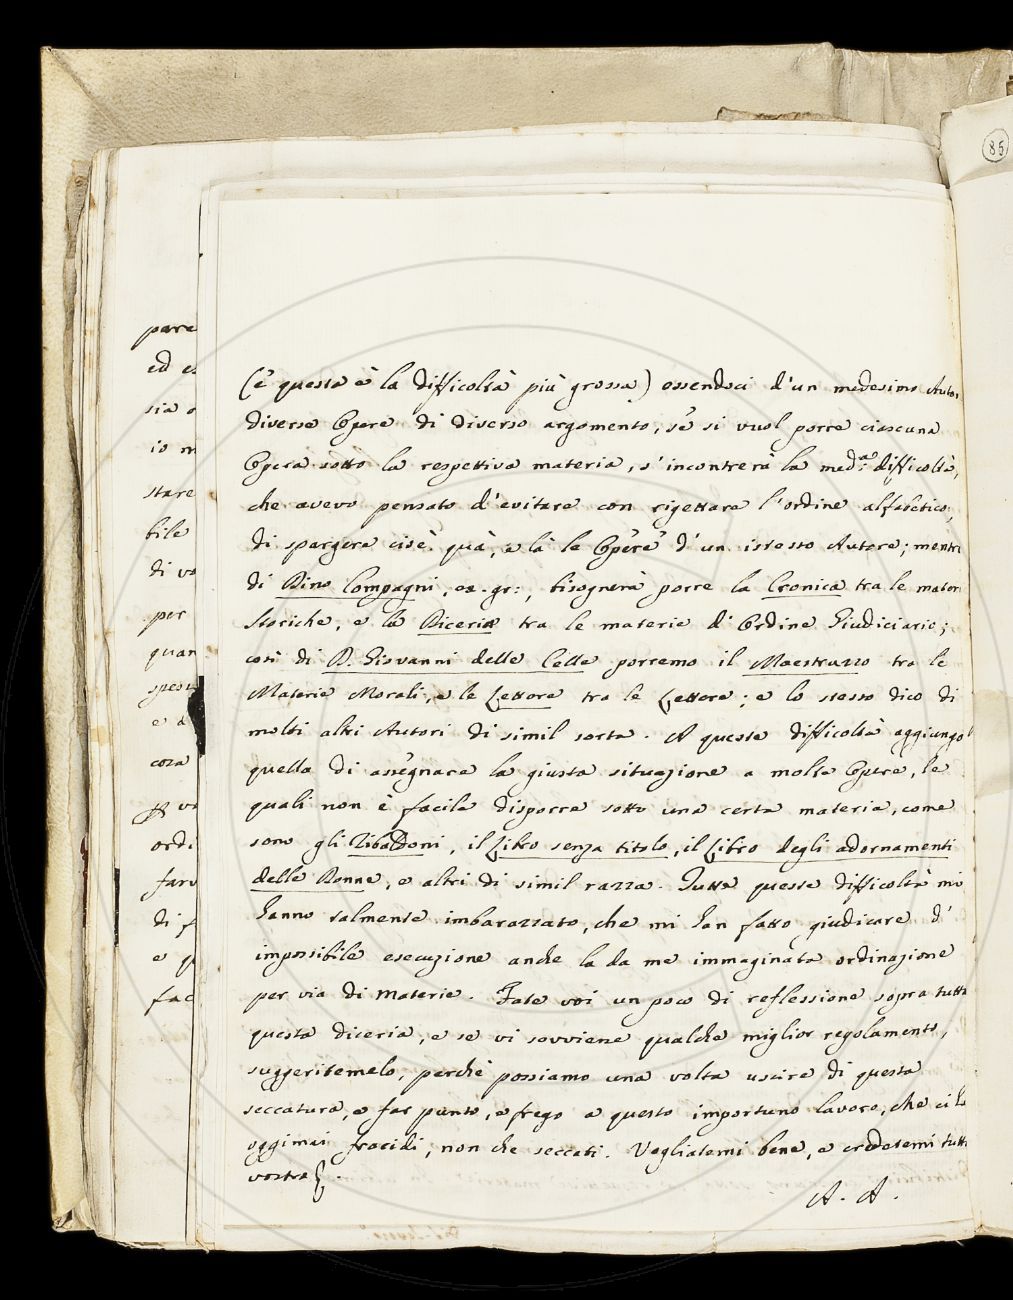 85
(è questa è la difficoltà più grossa) essendoci d'un medesimo Auto
diverse Opere di diverso argomento, sè si vuol porre ciascuna
Opera sotto la respettiva materia, s'incontrerà la med:ª difficoltà,
che avevo pensato d'evitare con rigettare l'ordine alfabetico,
di spargere cioè quà, e là le Opere d'un istesso Autore; mentre
di Dino Compagni, ex. gr:, bisognerà porre la Cronica tra le mater
Storiche, e la Diceria tra le materie d'Ordine Giudiciario;
così di D. Giovanni delle Celle porremo il Maestruzzo tra le
Materie Morali, e le Lettere tra le Lettere; e lo stesso dico di
molti altri Autori di simil sorta. A queste difficoltà aggiungo
quella di assegnare la giusta situazione a molte Opere, le
quali non è facile disporre sotto una certa materia, come
sono gli Zibaldoni, il Libro senza titolo, il Libro degli adornamenti
delle Donne, e altri di simil razza. Tutte queste difficoltà mi
hanno talmente imbarazzato, che mi han fatto giudicare d'
impossibile esecuzione anche la da me immaginata ordinazione
per via di Materie. Fate voi un poco di reflessione sopra tutta
questa diceria, e se vi sovviene qualche miglior regolamento,
suggeritemelo, perchè possiamo una volta uscire di questa
seccatura, e far punto, e frego a questo importuno lavoro, che ci ha
oggimai fracidi, non che seccati. Vogliatemi bene, e credetemi tutto
vostro.
A. A.
pare
ed es
sia
io m
stare
bile
di vo
per
quan
spess
e
cora
ordi
faro
di f
e
fac